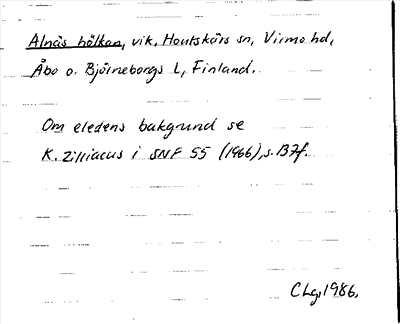 Alnäs hålkan, vik, Houtskärs sn, Virmo hd,
Åbo o. Björneborgs l, Finland.
Om eledens bakgrund se
K. Zilliacus i SNF 55 (1966), s. 137f.
CLg, 1986.